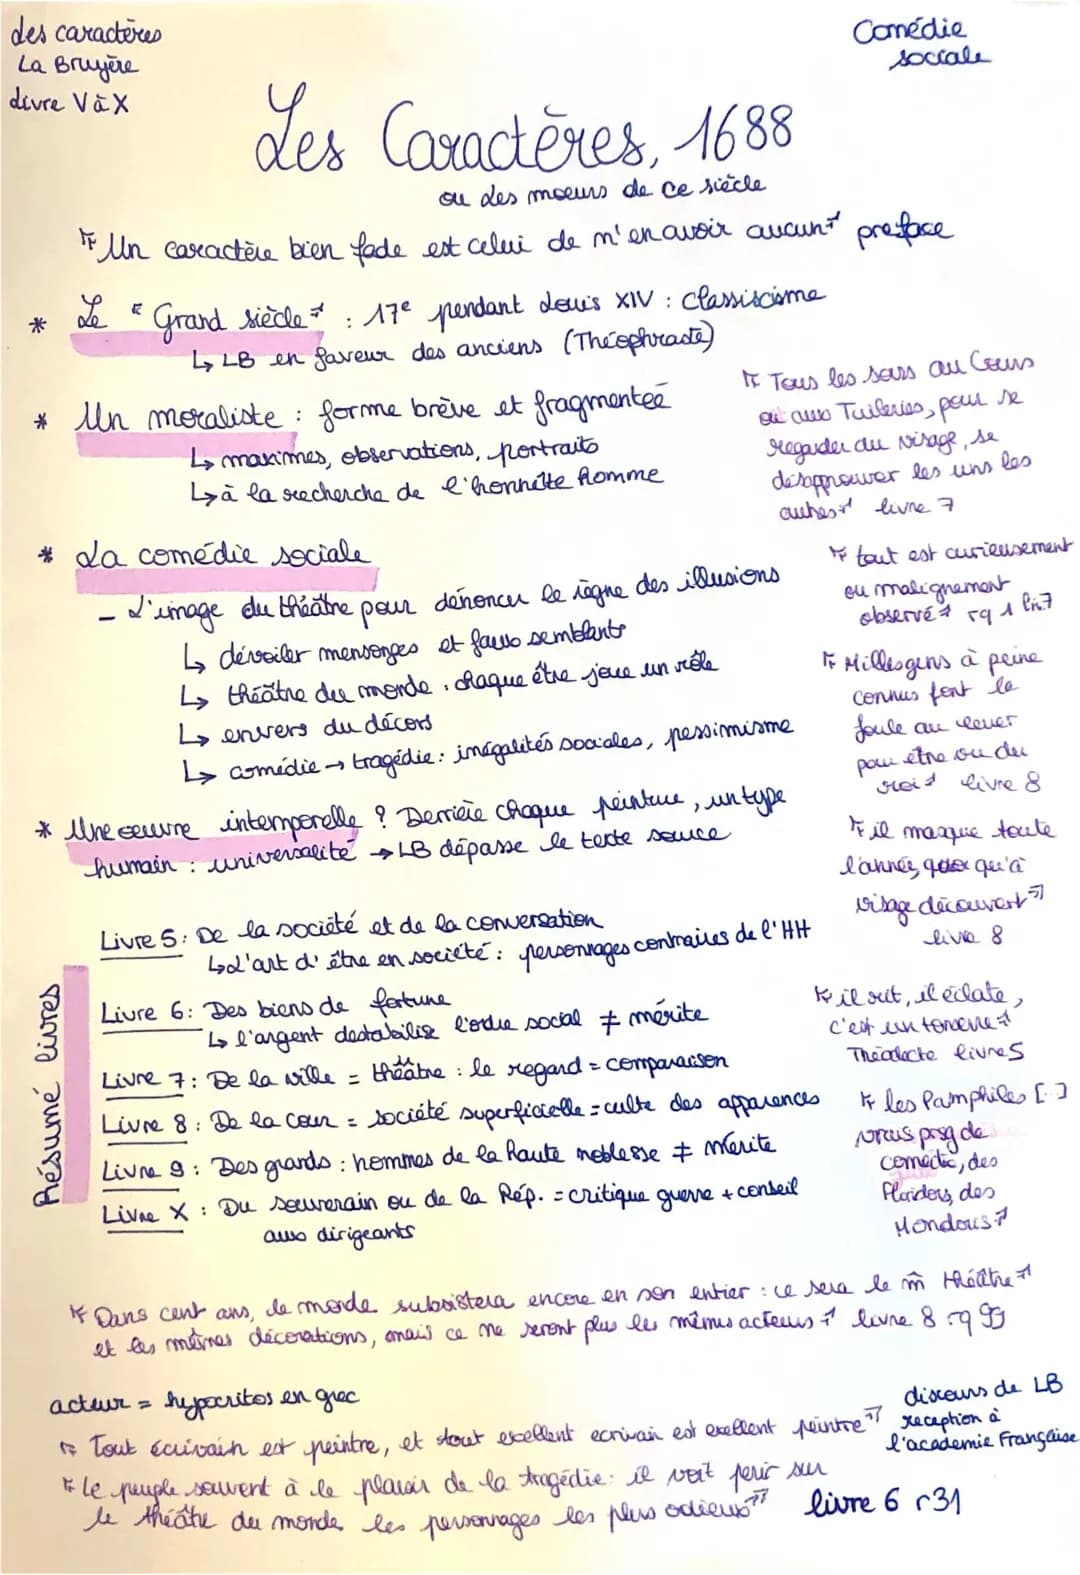 des caractères
La Bruyère
Livre V à X
Comédie
sociale
Les Caractères, 1688
ou des moeurs de ce siècle
"Un caractère bien fade est celui de n'en avoir aucun" preface
* Le "Grand siècle" : 17e pendant Louis XIV : Classiscisme
↳ LB en faveur des anciens (Théophraste)
* Un moraliste : forme brève et fragmentée
↳ maximes, observations, portraits
↳ à la recherche de l'honnête homme
"Tous les soirs au Cours
ou aux Tuileries, pour se
regarder du visage, se
désapprouver les uns les
autres" livre 7
* La comédie sociale
- L'image du théâtre pour dénoncer le règne des illusions
↳ dévoiler mensonges et faux semblants
↳ théâtre du monde : chaque être joue un rôle
↳ envers du décors
↳ comédie → tragédie : inégalités sociales, pessimisme
"tout est curieusement
ou malignement
observé" rq 1 liv.7
"Milles gens à peine
connus font la
foule au lever
pour etre vu du
roi" livre 8
* Une oeuvre intemporelle ? Derrière chaque peinture, un type
humain : universalité → LB dépasse le texte source
"il masque toute
l'année, quoi qu'à
visage découvert"
livre 8
Résumé livres
Livre 5 : De la société et de la conversation
↳ L'art d'être en société : personnages contraires de l'HH
Livre 6 : Des biens de fortune
↳ l'argent destabilise l'ordre social ≠ mérite
Livre 7 : De la ville = théâtre : le regard = comparaison
Livre 8 : De la cour = société superficielle = culte des apparences
Livre 9 : Des grands : hommes de la haute noblesse ≠ mérite
Livre X : Du souverain ou de la Rép. = critique guerre + conseil
aux dirigeants
"il rit, il éclate,
c'est un tonerre"
Théodecte livre 5
"les Pamphiles [..]
vrais prsg de
comedie, des
Floridors, des
Mondoris"
"Dans cent ans, le monde subsistera encore en son entier : ce sera le m̂ théâtre"
et les mêmes décorations, mais ce ne seront plus les mêmes acteurs" livre 8 rq 99
acteur = hypocritos en grec
"Tout écrivain est peintre, et tout excellent ecrivain est exellent peintre"
discours de LB
reception à
l'academie Française
"Le peuple souvent à le plaisir de la tragédie : il voit perir sur
le théâtre du monde les personnages les plus odieux" livre 6 r31